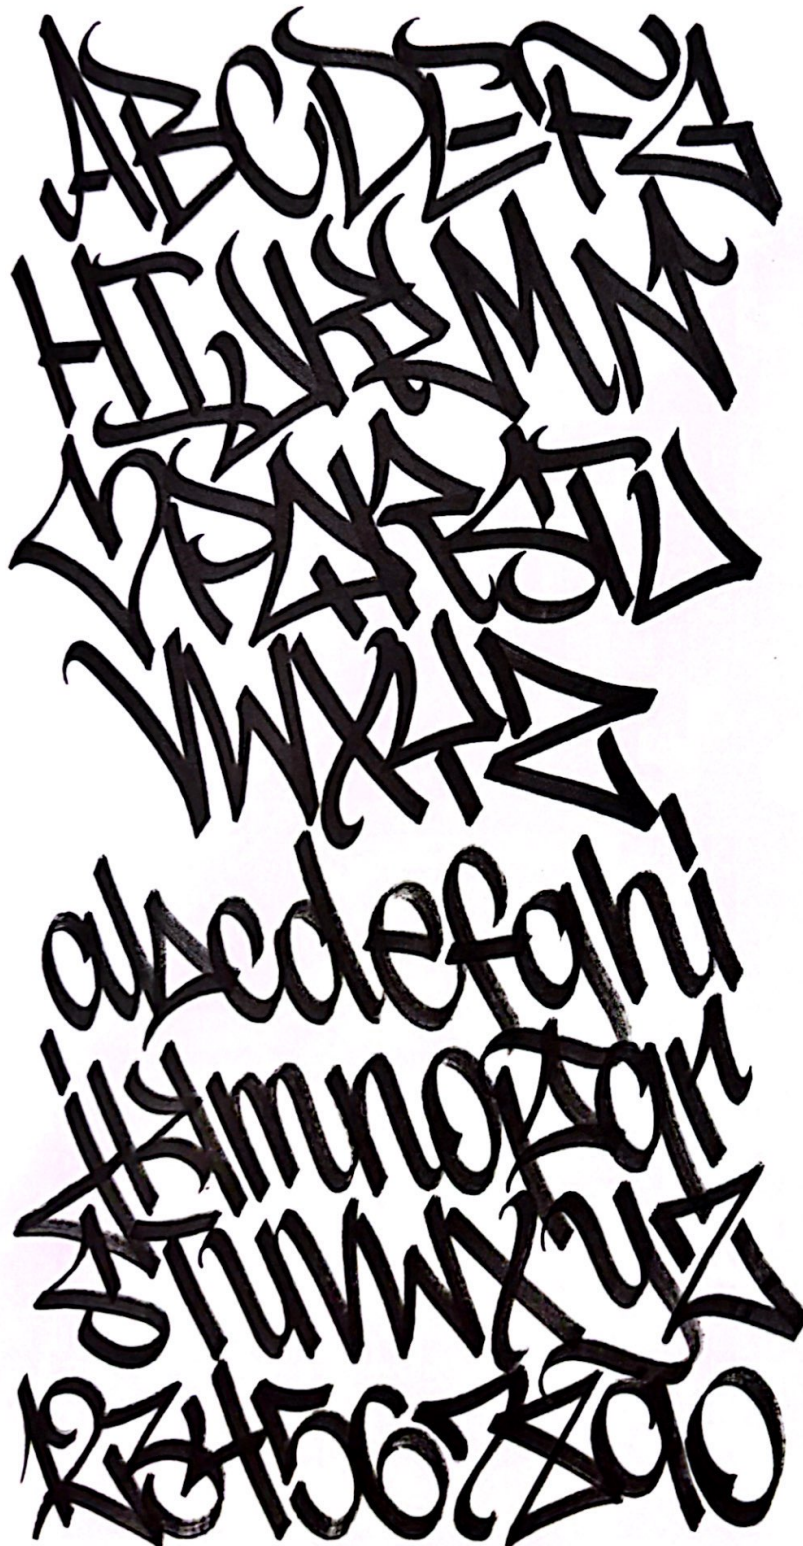 ABCDEFG
HIJKLMN
OPQRSTU
VWXYZ
abcdefghi
jklmnopqr
stuvwxyz
1234567890